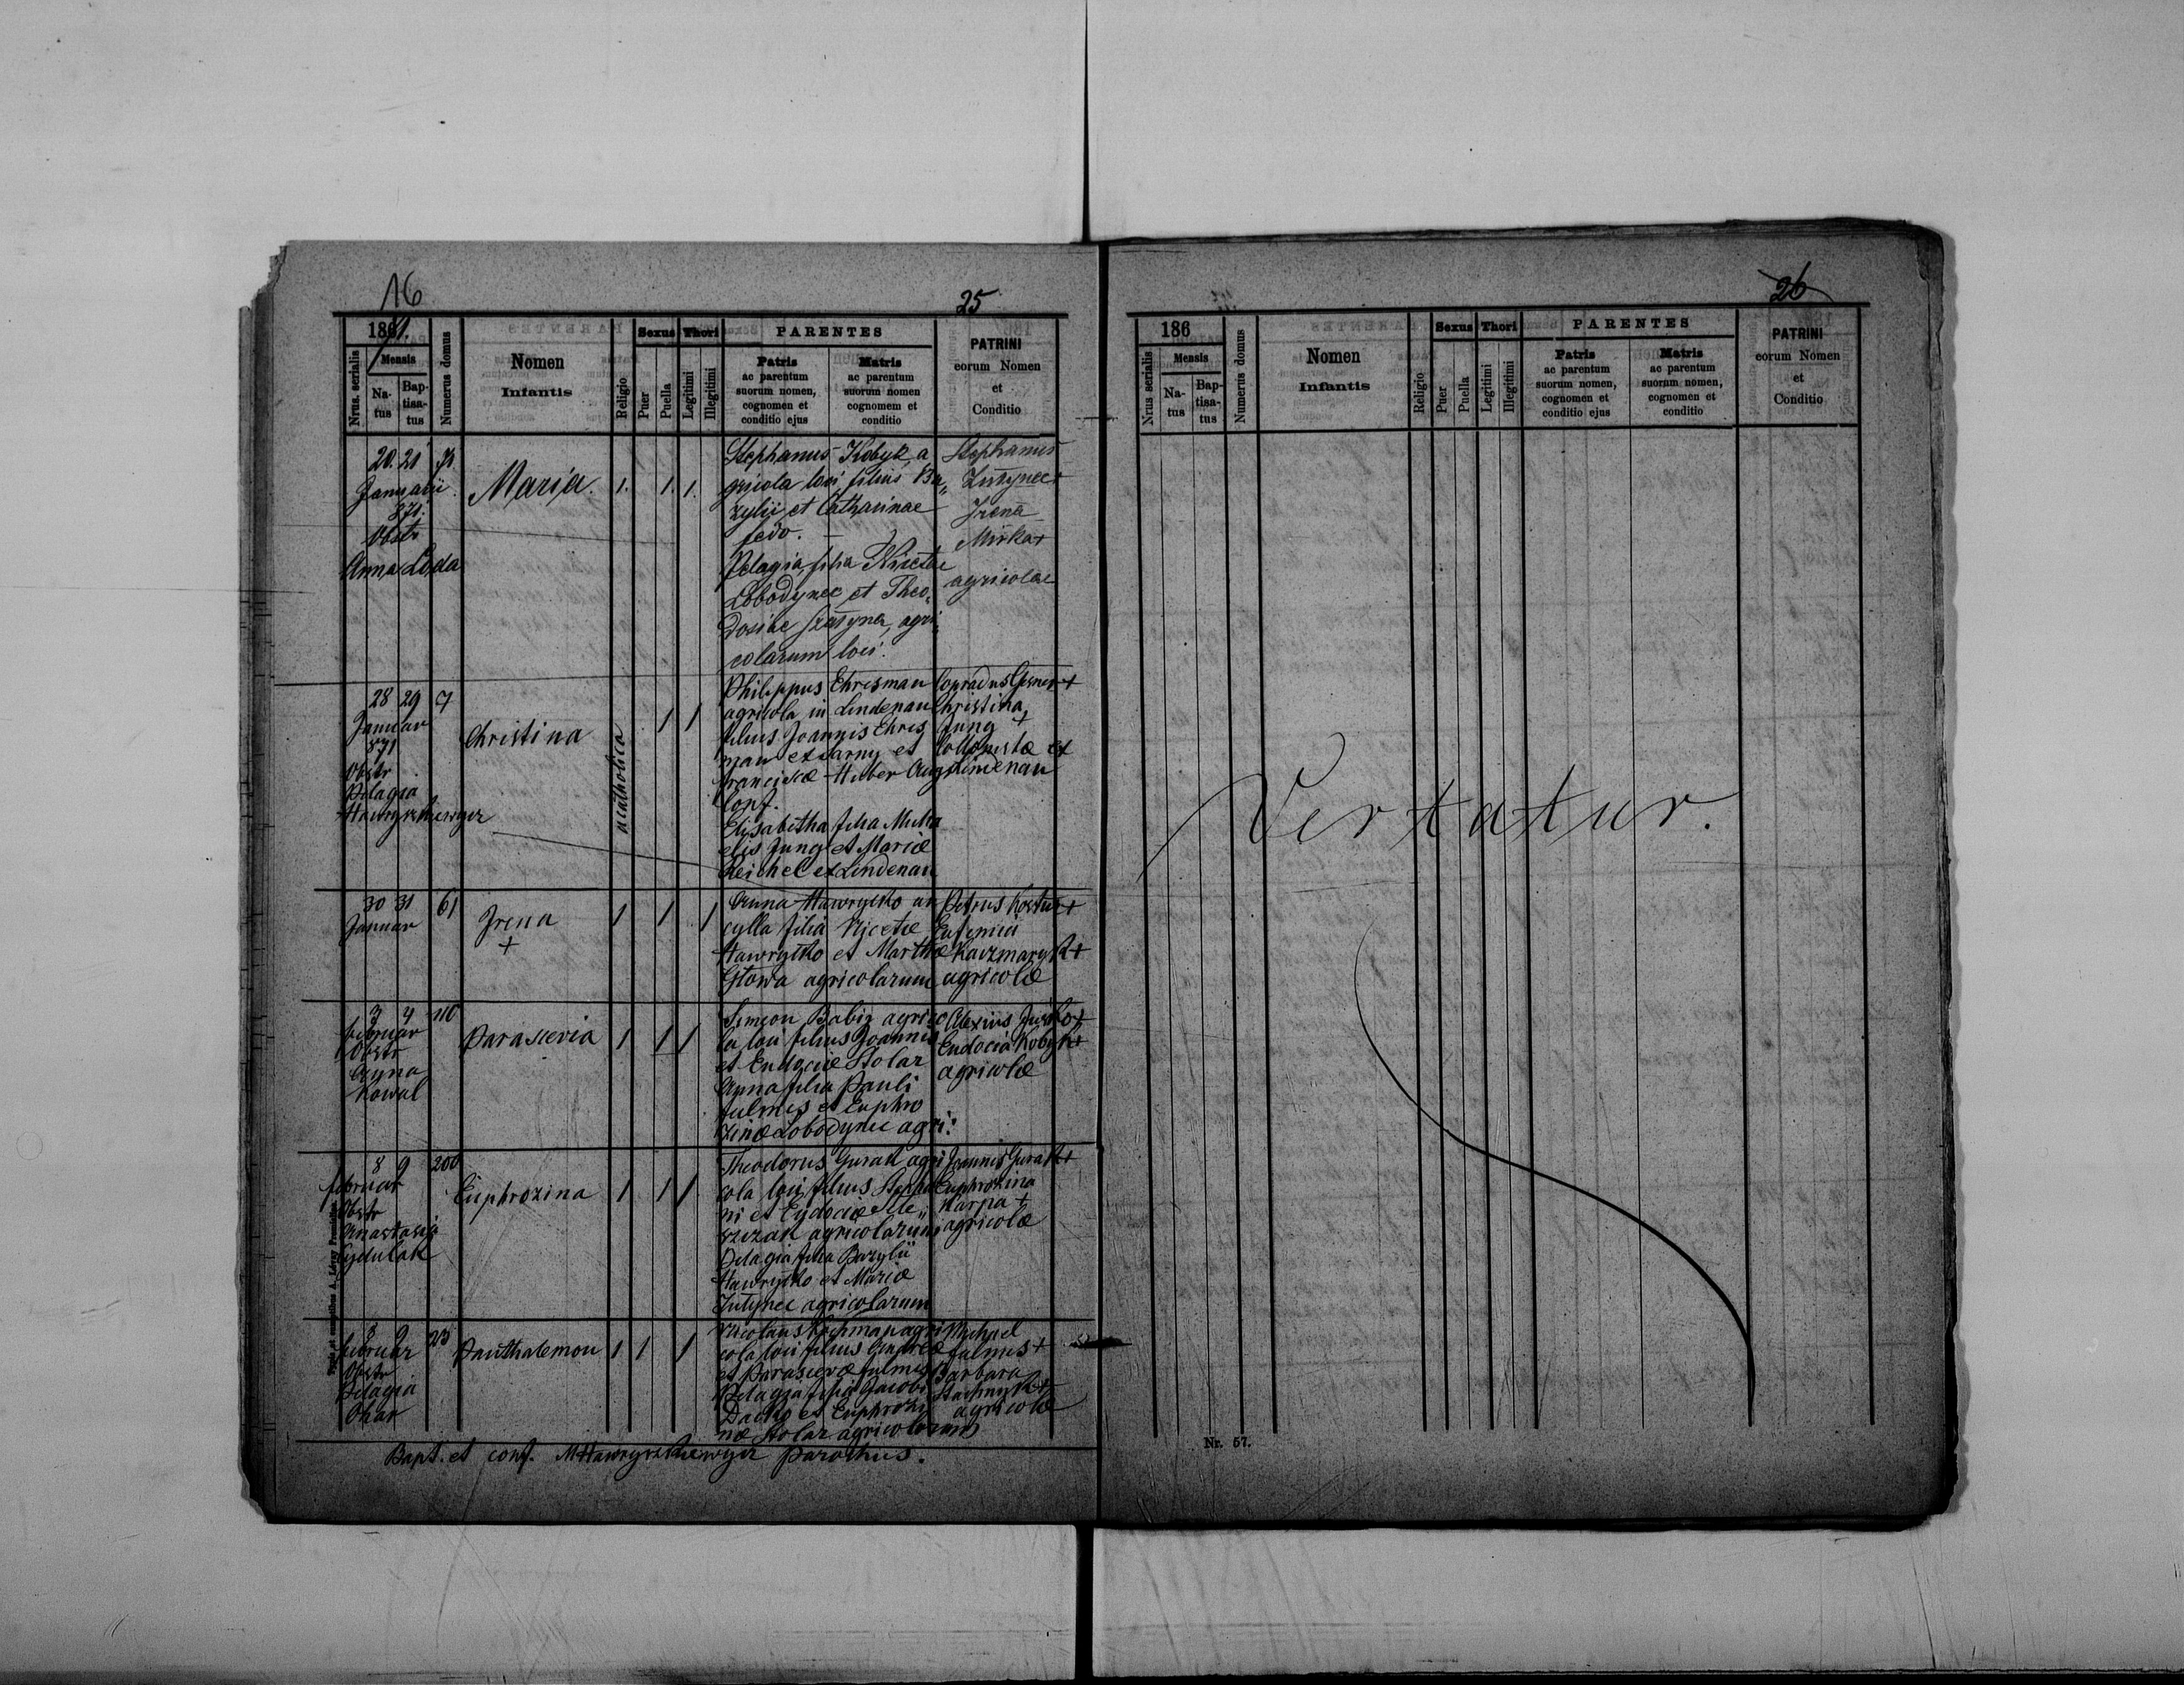 16
25
1871.
Nrus. serialis
Mensis
Na-
tus
Bap-
tisa-
tus
Numerus domus
Nomen
Infantis
Religio
Sexus
Puer
Puella
Thori
Legitimi
Illegitimi
PARENTES
Patris
ac parentum
suorum nomen,
cognomen et
conditio ejus
Matris
ac parentum
suorum nomen
cognomem et
conditio
PATRINI
eorum Nomen
et
Conditio
20. 21
Januarii
871.
Obstr
Anna
Maria. 1. 1. 1.
Stephanus Kobyk, a
gricola loci, filius Ba„
zylii et Catharinae
Pelagia, filia Nicetae
Lobodynec et Theo„
dosiae
agri„
colarum loci.
Stephanus
Irena
agricolae
28 29 7
Januar
871
Obstr
Pelagia
Hawryszkiewycz
Christina
acatholica
1 1
Philippus Ehresman
agricola in Lindenau
filius Joannis Ehres
man et
Franciscæ Huber Aug
Conf.
Elisabetha filia Micha
elis Jung et Mariæ
Reichel ex Lindenau
Conradus
Christina
Jung +
Collonistæ ex
Lindenau
30 31 61
Januar
Irena
+
1 1 1
Anna Hawryłko an
cylla filia Nicetæ
Hawryłko et Marthæ
agricolarum
Petrus
Eufemia
Kaczmaryk +
agricolæ
3 4 110
Februar
Obstr
Anna
Kowal
Parascevia 1 1 1
Simeon Babiz agrico
la loci filius Joannis
et Eudociæ Stolar
Anna filia Pauli
Julmes et Euphro
zinæ Lobodynec agri:
Alexius
Eudocia Kobyk +
agricolæ
8 9 200
Februar
Obstr
Anastasia
Euphrozina 1 1 1
Theodorus Gurak agri
cola loci filius Stepha
ni et Eudociæ
agricolarum
Pelagia filia Bazylii
Hawryłko et Mariæ
agricolarum
Joannes Gurak +
Euphrozina
Karpa +
agricolæ
8 9 23
Februar
Obstr
Pelagia
Panthalemon 1 1 1
Nicolaus
agri
cola loci filius
et Parascevæ Julmes
Pelagia filia Jacobi
et Euphrozi
næ Stolar agricolarum
Michael
Julmes +
Barbara
agricolæ
Bapt. et conf. MHawryszkiewycz parochus.
26
186
Nrus serialis
Mensis
Na-
tus
Bap-
tisa-
tus
Numerus domus
Nomen
Infantis
Religio
Sexus
Puer
Puella
Thori
Legitimi
Illegitimi
PARENTES
Patris
ac parentum
suorum nomen,
cognomen et
conditio ejus
Matris
ac parentum
suorum nomen,
cognomen et
conditio
PATRINI
eorum Nomen
et
Conditio
Vertatur.
Nr. 57.